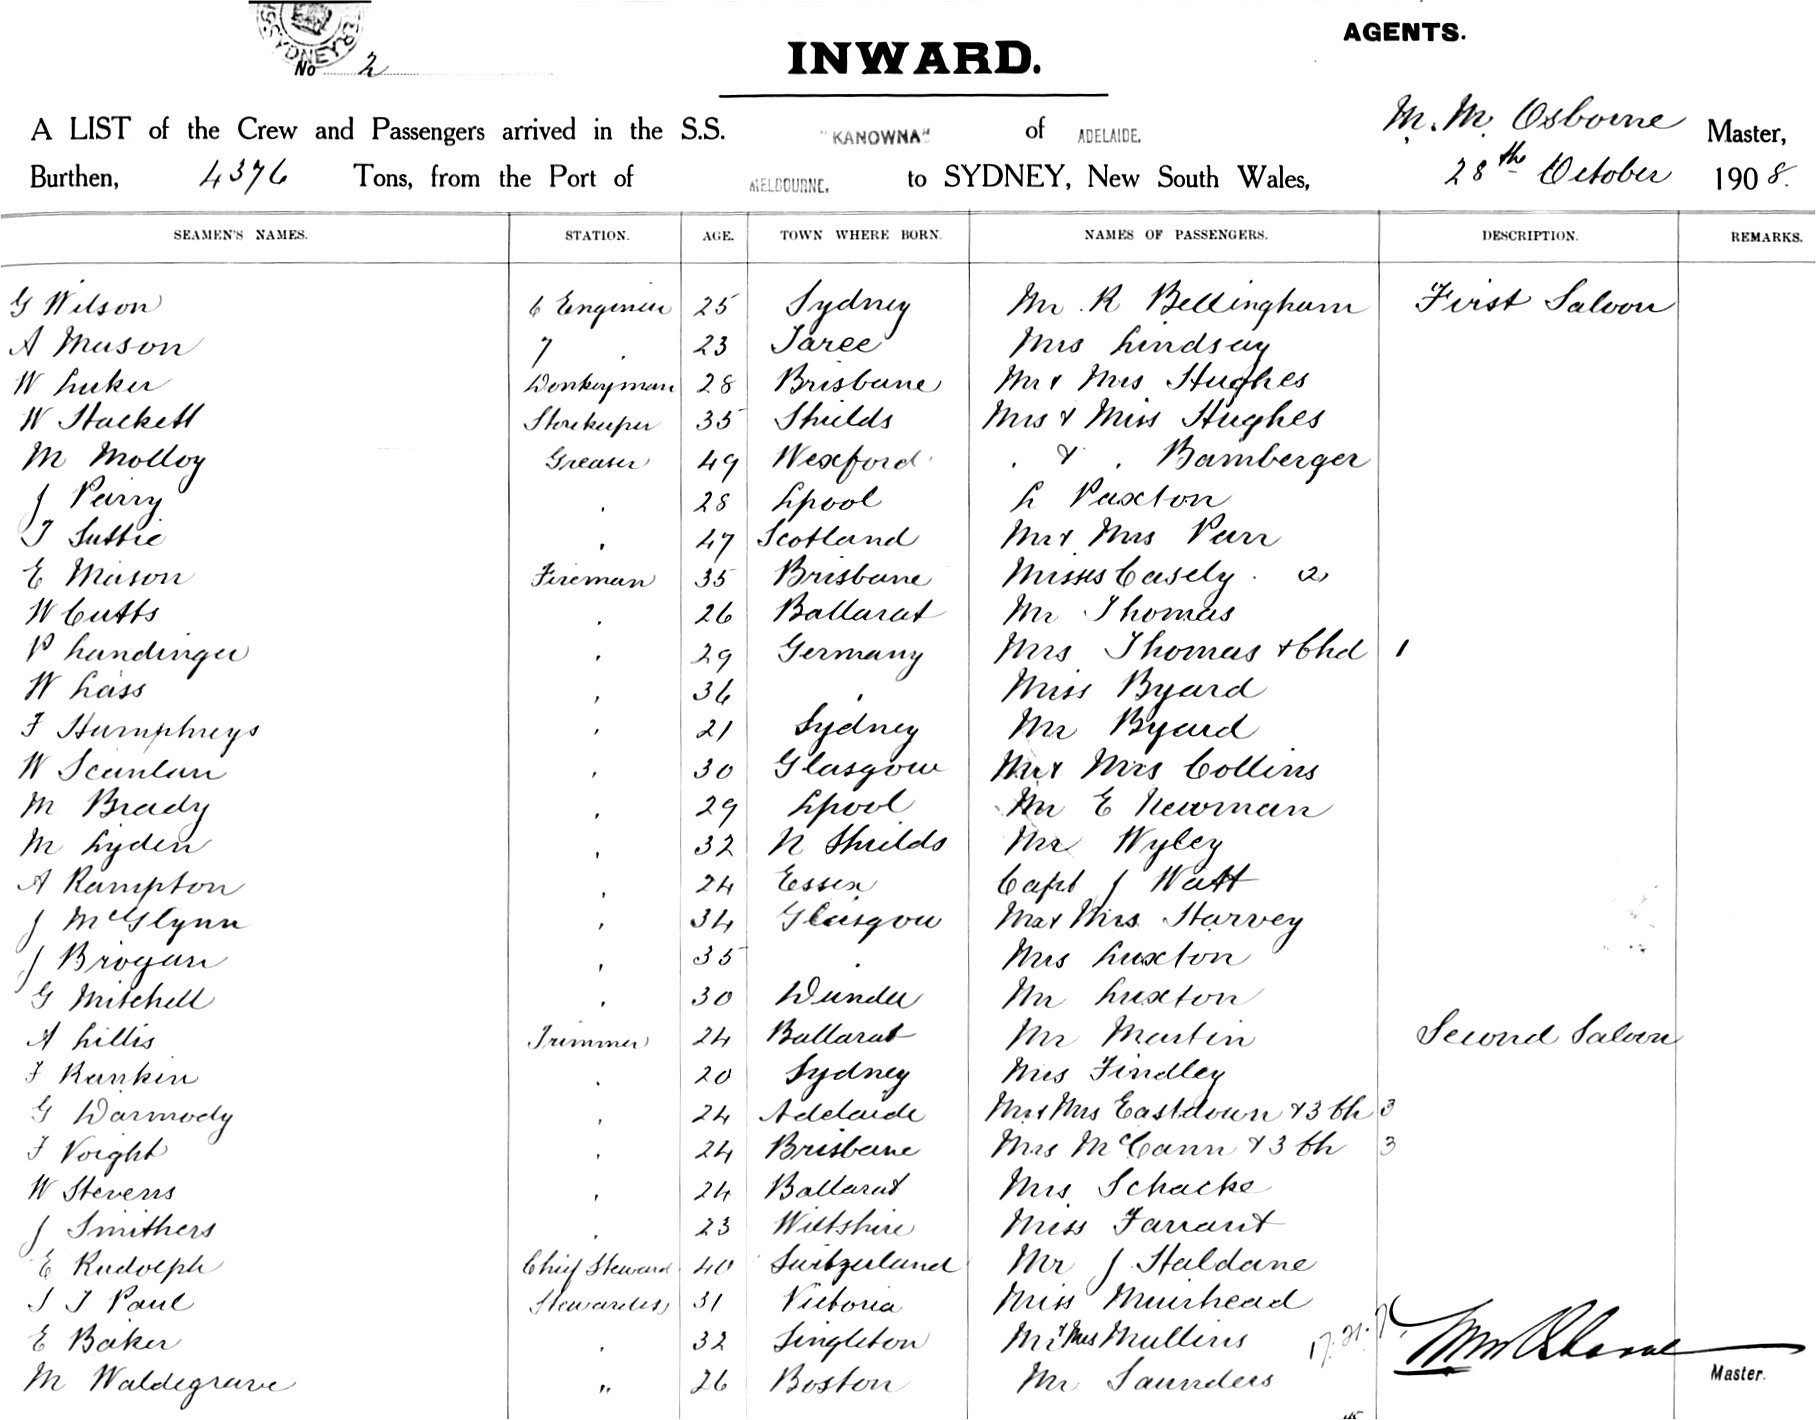 SYDNEY
No 2
AGENTS.
INWARD.
A LIST of the Crew and Passengers arrived in the S.S. "KANOWNA" of ADELAIDE, M. M. Osborne Master,
Burthen, 4376 Tons, from the Port of MELBOURNE, to SYDNEY, New South Wales, 28th October 1908.
SEAMEN'S NAMES. STATION. AGE. TOWN WHERE BORN. NAMES OF PASSENGERS. DESCRIPTION. REMARKS.
G Wilson 6 Engineer 25 Sydney Mr. R Bellingham First Saloon
A Mason 7 . 23 Taree Mrs Lindsay
W Luker Donkeyman 28 Brisbane Mr & Mrs Hughes
W Hackett Storekeeper 35 Shields Mrs & Miss Hughes
M Molloy Greaser 49 Wexford . & . Bamberger
J Parry . 28 Lpool L Paxton
T Suttie . 47 Scotland Mr & Mrs Parr
E Mason Fireman 35 Brisbane Misses Casely . 2
W Cutts . 26 Ballarat Mr Thomas
P Landinger . 29 Germany Mrs Thomas & Chd 1
W Lass . 36 . Miss Byard
F Humphreys . 21 Sydney Mr Byard
W Scanlan . 30 Glasgow Mr & Mrs Collins
M Brady . 29 Lpool Mr E Newman
M Lyden . 32 N Shields Mr Wyley
A Rampton . 24 Essex Capt J Watt
J McGlynn . 34 Glasgow Mr & Mrs Harvey
J Brogan . 35 . Mrs Luxton
G Mitchell . 30 Dundee Mr Luxton
A Lillis Trimmer 24 Ballarat Mr Martin Second Saloon
F Rankin . 20 Sydney Mrs Findley
G Darmody . 24 Adelaide Mr & Mrs Eastdown & 3 Ch 3
F Voight . 24 Brisbane Mrs McCann & 3 Ch 3
W Stevens . 24 Ballarat Mrs Schacke
J Smithers . 23 Wiltshire Miss Farrant
E Rudolph Chief Steward 40 Switzerland Mr J Haldane
S J Paul Stewardess 31 Victoria Miss Muirhead
E Baker . 32 Singleton Mr & Mrs Mullins
M Waldegrave " 26 Boston Mr Saunders
M M Osborne
Master.